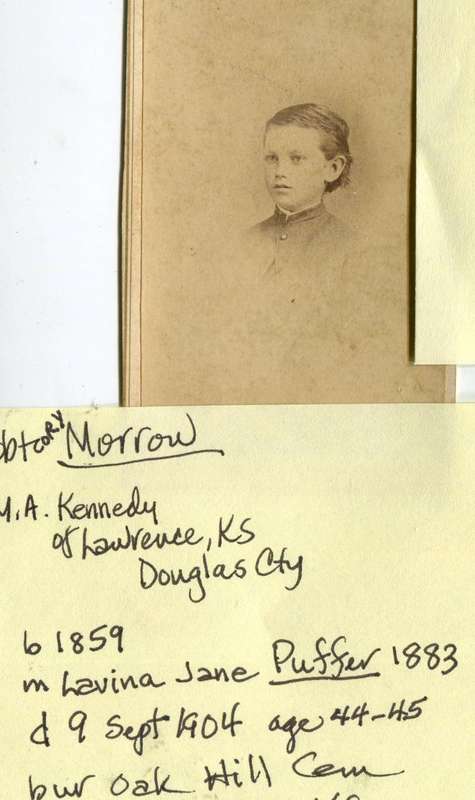 cory Morrow
M.A. Kennedy
of Lawrence, KS
Douglas Cty
b 1859
m Lavina Jane Puffer 1883
d 9 Sept 1904 age 44-45
bur Oak Hill Cem